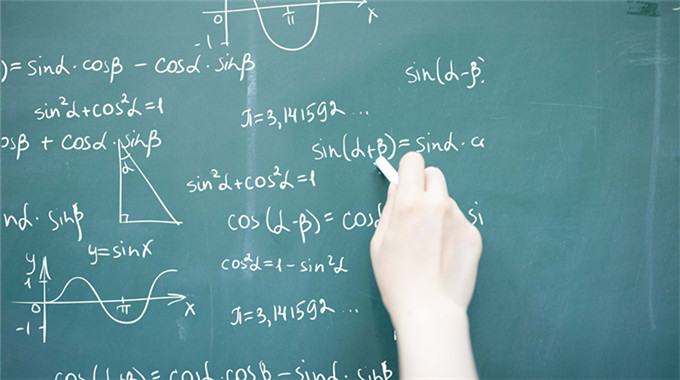 0 π x
-1
) = sinα · cosβ − cosα · sinβ
sin(α-β)
sin²α+cos²α=1
π=3,141592 ...
osβ + cosα · sinβ
sin(α+β) = sinα · c
α
sin²α+cos²α=1
nα · sinβ
cos(α-β) = cosα si
y=sinx
cos²α=1-sin²α
y
1
0 π x
-1
π=3,141592 ...
cos(α+β) = cosα · cosβ − sinα · sinβ